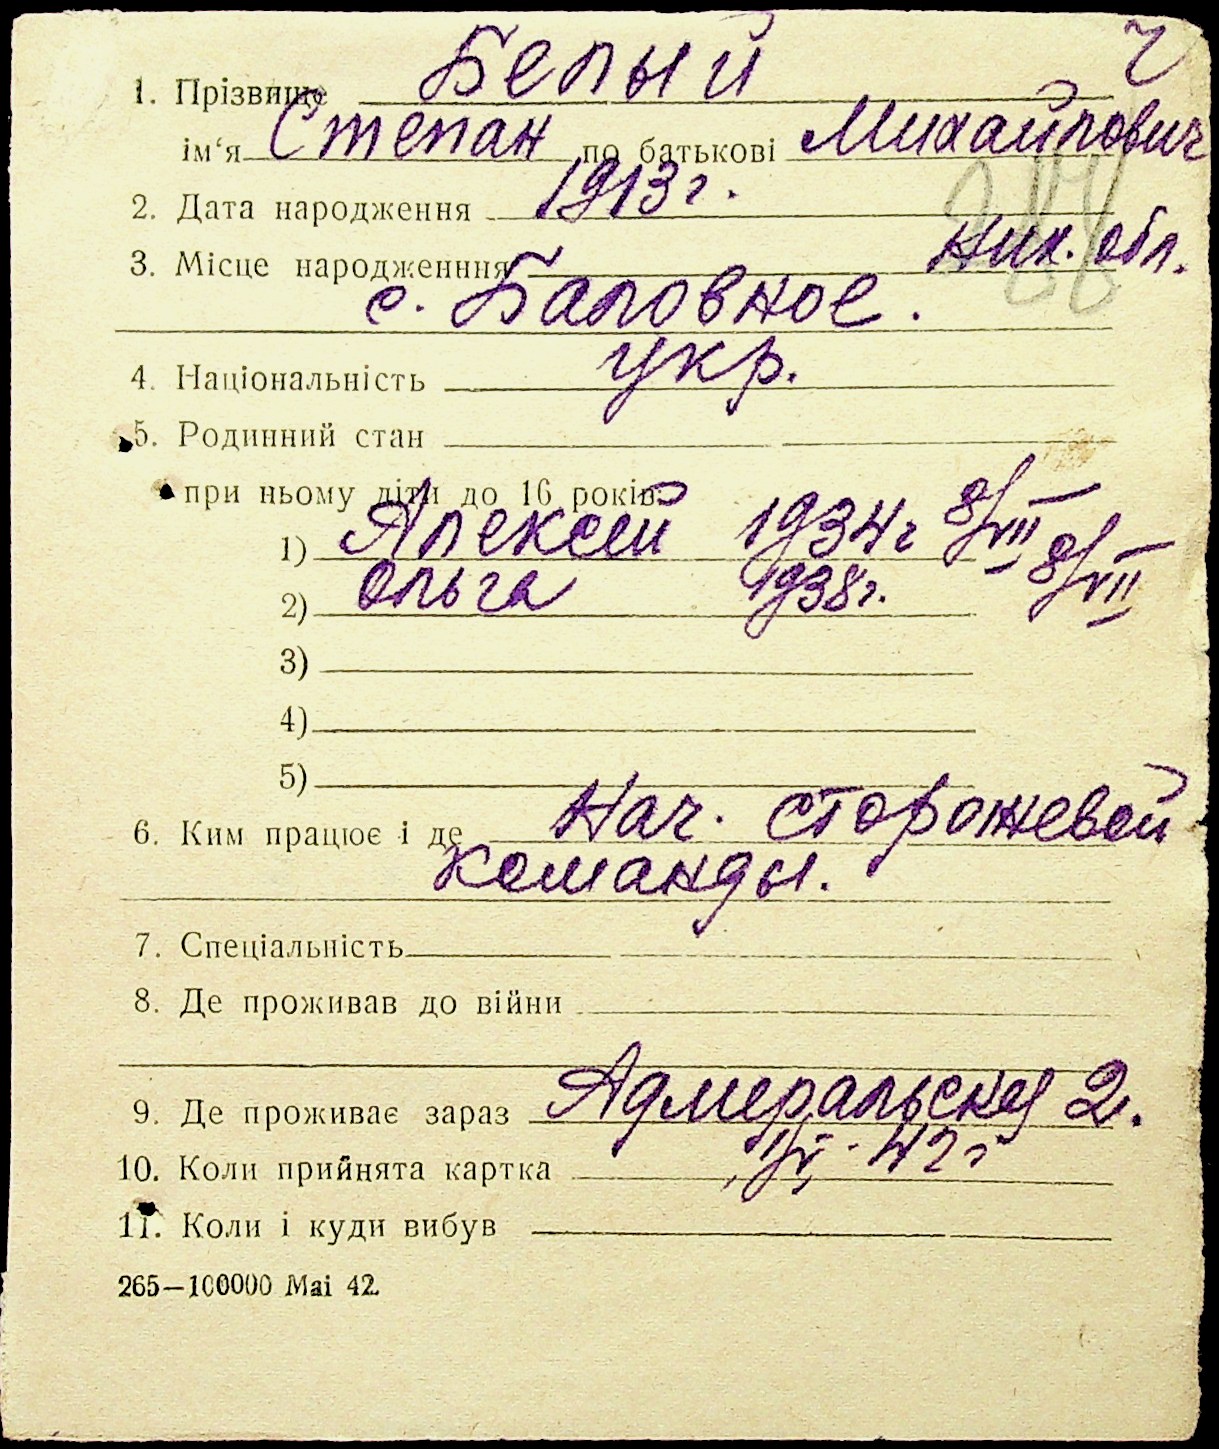 Ч
1. Прізвище Белый
ім‘я Степан по батькові Михайлович
2. Дата народження 1913г.
3. Місце народженння Ник. обл.
с. Баловное.
4. Національність укр.
5. Родинний стан
при ньому діти до 16 років:
1) Алексей 1934г 8/VII
2) Ольга 1938г. 8/VII
3)
4)
5)
6. Ким працює і де Нач. сторожевой
команды.
7. Спеціальність
8. Де проживав до війни
9. Де проживає зараз Адмеральская 2.
10. Коли прийнята картка 42г
11. Коли і куди вибув
265—100000 Маі 42